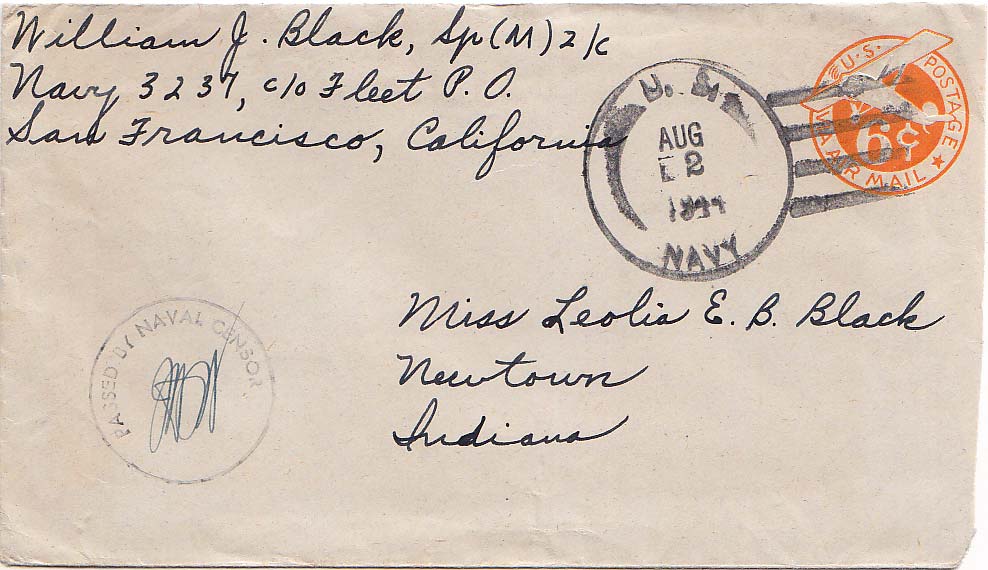 William J. Black, Sp(M) 2/c
Navy 3237, c/o Fleet P. O.
San Francisco, California
U. S.
AUG
2
1944
NAVY
U.S. POSTAGE
6¢
VIA AIR MAIL
PASSED BY NAVAL CENSOR
Miss Leolia E. B. Black
Newtown
Indiana